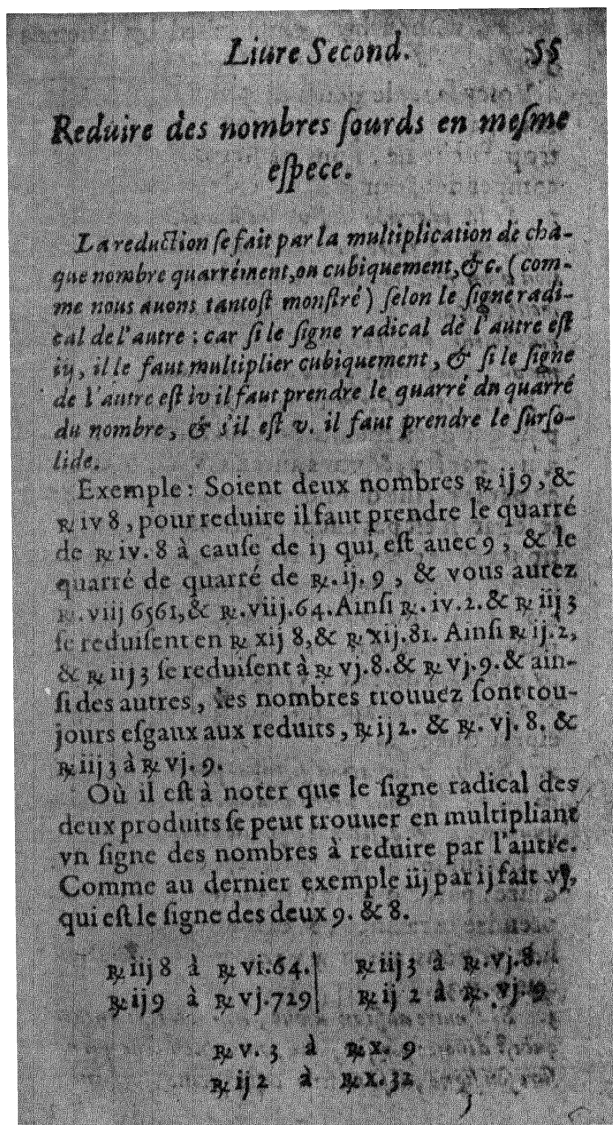 Liure Second. 55
Reduire des nombres ſourds en meſme
eſpece.
La reduction ſe fait par la multiplication de cha-
que nombre quarrément, ou cubiquement, &c. (com-
me nous auons tantoſt monſtré) ſelon le ſigne radi-
cal de l'autre : car ſi le ſigne radical de l'autre eſt
iij, il le faut multiplier cubiquement, & ſi le ſigne
de l'autre eſt iv il faut prendre le quarré du quarré
du nombre, & s'il eſt v. il faut prendre le ſurſo-
lide.
Exemple : Soient deux nombres ℞ ij 9, &
℞ iv 8, pour reduire il faut prendre le quarré
de ℞ iv. 8 à cauſe de ij qui eſt auec 9, & le
quarré de quarré de ℞. ij. 9, & vous aurez
℞. viij 6561, & ℞. viij. 64. Ainſi ℞. iv. 2. & ℞ iij 3
ſe reduiſent en ℞ xij 8, & ℞ xij. 81. Ainſi ℞ ij. 2,
& ℞ iij 3 ſe reduiſent à ℞ vj. 8. & ℞ vj. 9. & ain-
ſi des autres, les nombres trouuez ſont tou-
jours eſgaux aux reduits, ℞ ij 2. & ℞. vj. 8. &
℞ iij 3 à ℞ vj. 9.
Où il eſt à noter que le ſigne radical des
deux produits ſe peut trouuer en multipliant
vn ſigne des nombres à reduire par l'autre.
Comme au dernier exemple iij par ij fait vj,
qui eſt le ſigne des deux 9. & 8.
℞ iij 8 à ℞ vi. 64. | ℞ iij 3 à ℞. vj. 8.
℞ ij 9 à ℞ vj. 729 | ℞ ij 2 à ℞. vj. 9
℞ v. 3 à ℞ x. 9
℞ ij 2 à ℞ x. 32